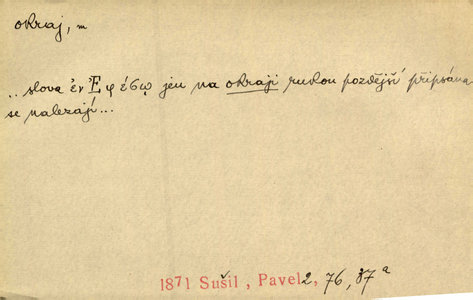 okraj, m
..slova ἐν Ἐφέσῳ jen na okraji rukou pozdější připsána
se nalezají...
1871 Sušil, Pavel 2, 76, 37ª